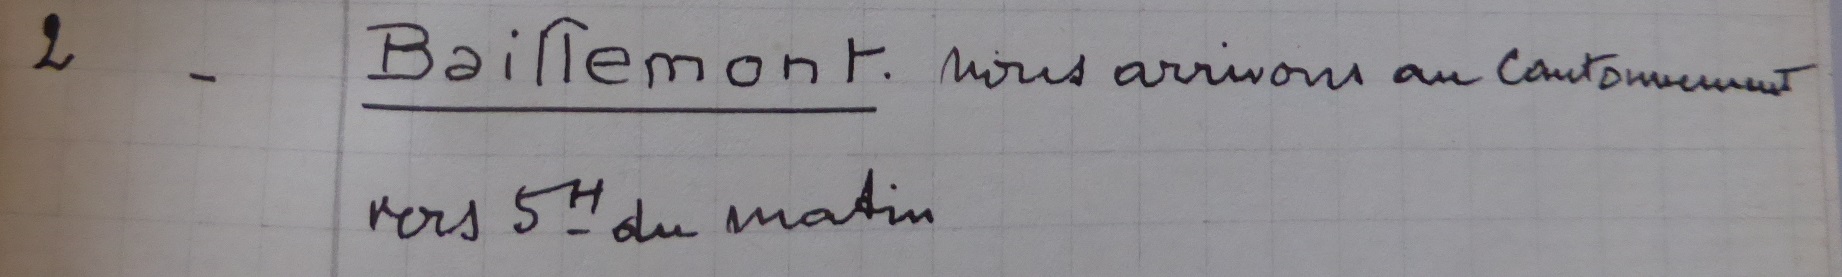 2 - Baillemont. nous arrivons au Cantonnement
vers 5H du matin